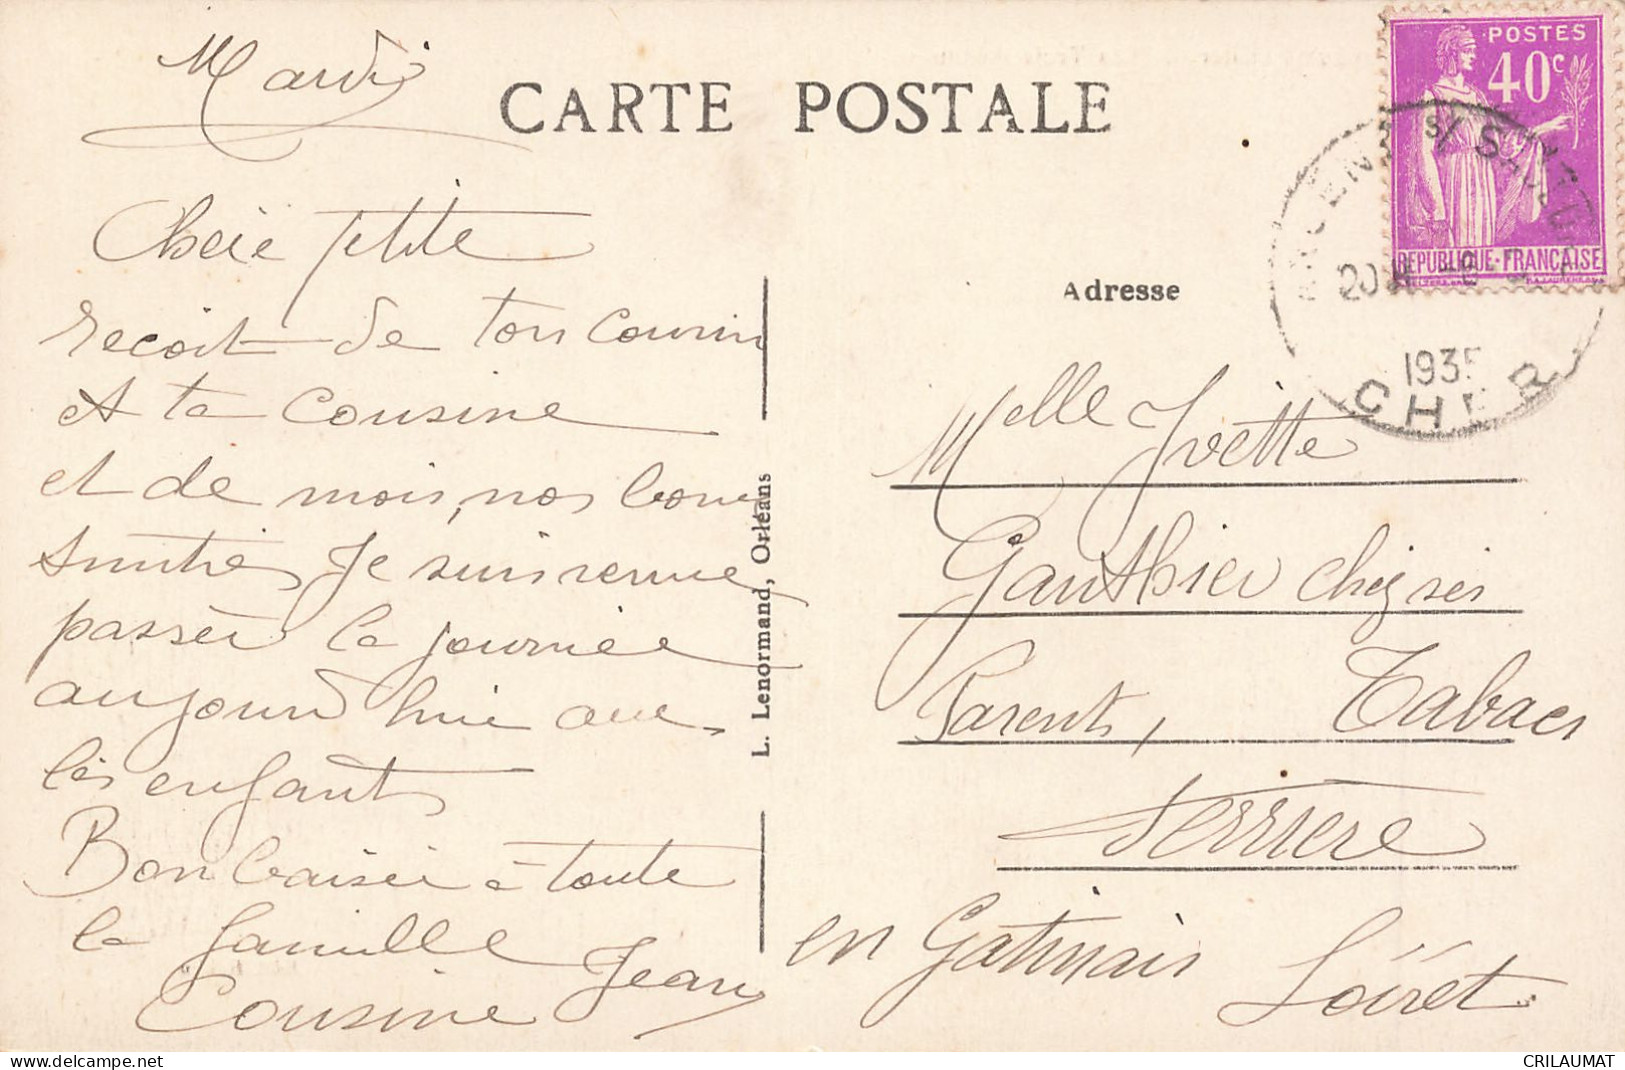 Mardi
CARTE POSTALE
Cherie petite
recoit de ton Cousin
et ta Cousine
et de mois, nos bonne
amitiés Je suis venue
passer la journée
aujourd hui avec
les enfants
Bon baiser à toute
la famille Jean
Cousine
L. Lenormand, Orléans
POSTES
40c
REPUBLIQUE-FRANÇAISE
S/ SAULDRE
20
1935
CHER
Adresse
Melle Yvette
Gauthier chez ses
Parents, Tabacs
Ferriere
en Gatinais Loiret
delcampe.net
CRILAUMAT